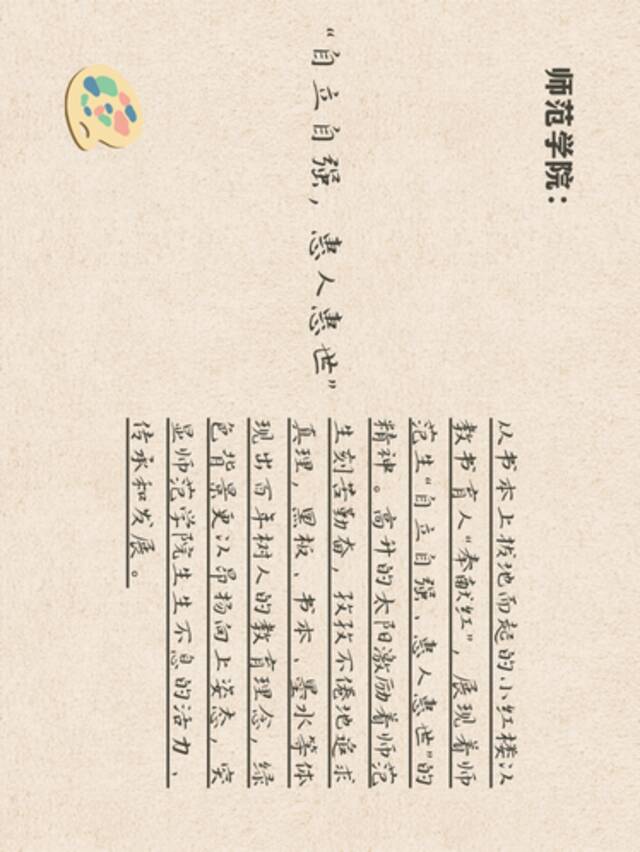 师范学院：
“自立自强，惠人惠世”
从书本上拔地而起的小红楼以
教书育人“奉献红”，展现着师
范生“自立自强、惠人惠世”的
精神。高升的太阳激励着师范
生刻苦勤奋，孜孜不倦地追求
真理，黑板、书本、墨水等体
现出百年树人的教育理念，绿
色背景更以昂扬向上姿态，突
显师范学院生生不息的活力、
传承和发展。